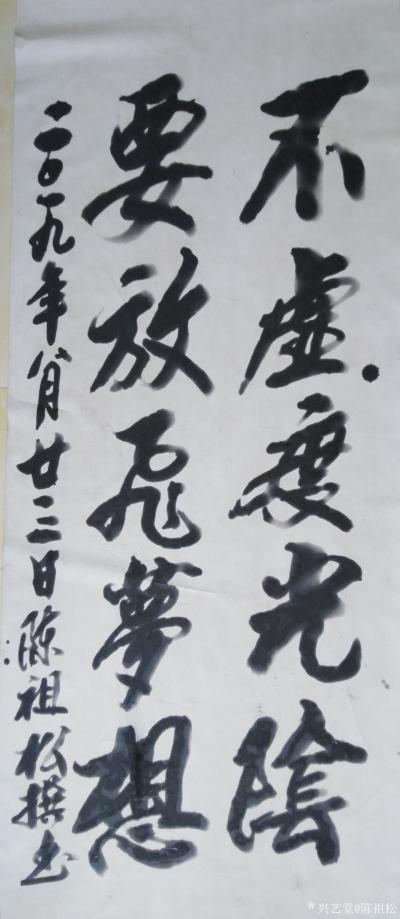 不虚度光陰
要放飛夢想
二〇一九年八月廿三日陈祖松撰书
兴艺堂@陈祖松